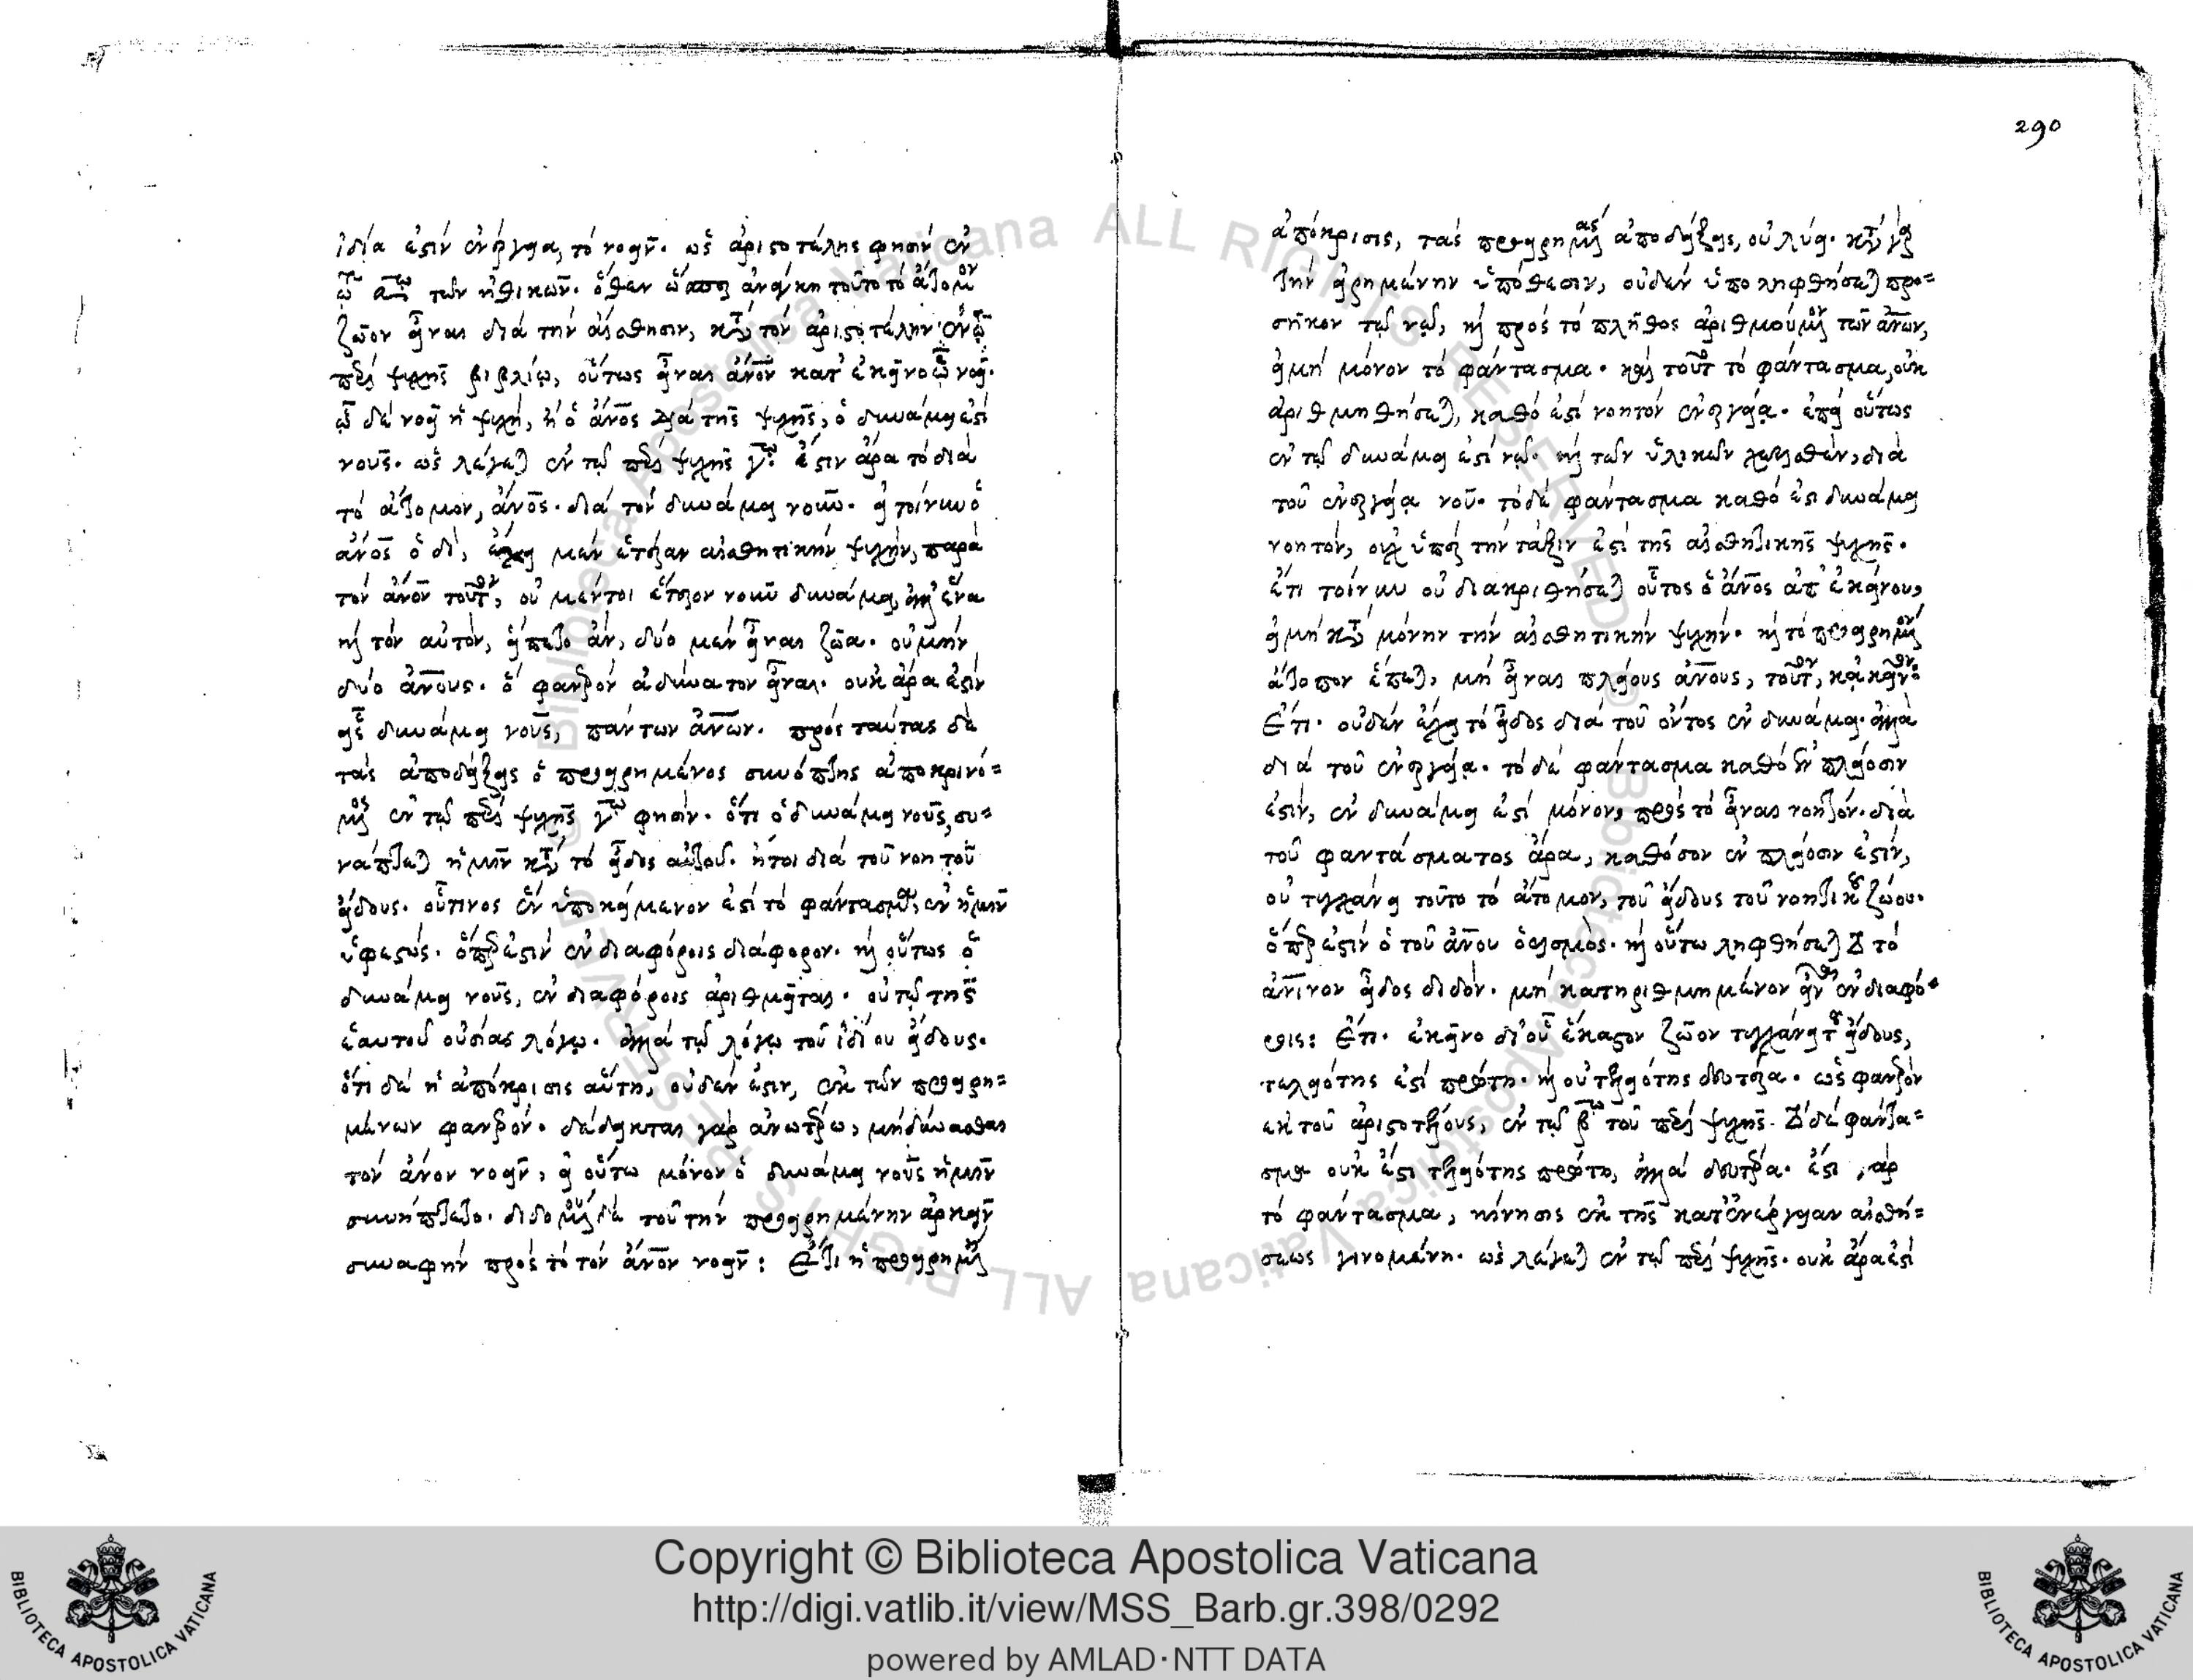 ἰδία ἐστὶν ἐνέργεια, τὸ νοεῖν. ὡς ἀριστοτέλης φησὶν ἐν
τῶ πρώτω τῶν ἠθικῶν. ὅθεν ὥσπερ ἀνάγκη τοῦτο τὸ ἄτομον
ζῶον εἶναι διὰ τὴν αἴσθησιν, κατὰ τὸν ἀριστοτέλην ἐν τῶ
περὶ ψυχῆς βιβλίω, οὕτως εἶναι ἄνον κατ' ἐκεῖνο ὧ νοεῖ.
ὧ δὲ νοεῖ ἡ ψυχή, ἢ ὁ ἄνος διὰ τῆς ψυχῆς, ὁ δυνάμει ἐστὶ
νοῦς. ὡς λέγεται ἐν τῶ περὶ ψυχῆς γω. ἔστιν ἄρα τόδε
τὸ ἄτομον, ἄνος. διὰ τὸν δυνάμει νοῦν. εἰ τοίνυν ὁ
ἄνος ὁδὶ, ἔχει μὲν ἑτέραν αἰσθητικὴν ψυχὴν, παρὰ
τὸν ἄνον τοῦτον, οὐ μέντοι ἕτερον νοῦν δυνάμει, ἀλλ' ἕνα
καὶ τὸν αὐτὸν, ἕποιτο ἂν, δύο μὲν εἶναι ζῶα. οὐ μὴν
δύο ἄνους. ὃ φανερὸν ἀδύνατον εἶναι. οὐκ ἄρα ἐστὶν
εἷς δυνάμει νοῦς, πάντων ἄνων. πρὸς ταύτας δὲ
τὰς ἀποδείξεις ὁ προειρημένος συνόπτης ἀποκρινό=
μενος ἐν τῶ περὶ ψυχῆς γω φησὶν. ὅτι ὁ δυνάμει νοῦς, συ=
νάπτεται ἡμῖν κατὰ τὸ εἶδος αὐτοῦ. ἤτοι διὰ τοῦ νοητοῦ
εἴδους. οὗτινος ἓν ὑποκείμενον ἐστὶ τὸ φάντασμα, ἐν ἡμῖν
ὑφεστώς. ὅπερ ἐστὶν ἐν διαφόροις διάφορον. καὶ οὕτως ὁ
δυνάμει νοῦς, ἐν διαφόροις ἀριθμεῖται. οὐ τῶ τῆς
ἑαυτοῦ οὐσίας λόγω. ἀλλὰ τῶ λόγω τοῦ ἰδίου εἴδους.
ὅτι δὲ ἡ ἀπόκρισις αὕτη, οὐδέν ἐστιν, ἐκ τῶν προειρη=
μένων φανερόν. δέδεικται γὰρ ἀνωτέρω, μὴ δύνασθαι
τὸν ἄνον νοεῖν, εἰ οὕτω μόνον ὁ δυνάμει νοῦς ἡμῖν
συνήπτετο. διδομένου δὲ τοῦ τὴν προειρημένην ἀρκεῖν
συναφὴν πρὸς τὸ τὸν ἄνον νοεῖν: Ἔτι ἡ προειρημένη
290
ἀπόκρισις, τὰς προειρημένας ἀποδείξεις, οὐ λύει. κατὰ γὰρ
τὴν εἰρημένην ὑπόθεσιν, οὐδὲν ὑποληφθήσεται προ=
σῆκον τῶ νῶ, καὶ πρὸς τὸ πλῆθος ἀριθμούμενον τῶν ἄνων,
εἰ μὴ μόνον τὸ φάντασμα. καὶ τοῦτο τὸ φάντασμα, οὐκ
ἀριθμηθήσεται, καθό ἐστι νοητὸν ἐνεργείᾳ. ἐπεὶ οὕτως
ἐν τῶ δυνάμει ἐστὶ νῶ. καὶ τῶν ὑλικῶν χωρισθὲν, διὰ
τοῦ ἐνεργείᾳ νοῦ. τὸ δὲ φάντασμα καθό ἐστι δυνάμει
νοητὸν, οὐχ ὑπὲρ τὴν τάξιν ἐστὶ τῆς αἰσθητικῆς ψυχῆς.
ἔτι τοίνυν οὐ διακριθήσεται οὗτος ὁ ἄνος ἀπ' ἐκείνου,
εἰ μὴ κατὰ μόνην τὴν αἰσθητικὴν ψυχήν. καὶ τὸ προειρημένον
ἄτοπον ἕπεται, μὴ εἶναι πλείους ἄνους, τοῦτον, κἀκεῖνον:
Ἔτι. οὐδὲν ἔχει τὸ εἶδος διὰ τοῦ ὄντος ἐν δυνάμει. ἀλλὰ
διὰ τοῦ ἐνεργείᾳ. τὸ δὲ φάντασμα καθὸ ἐν πλείοσιν
ἐστὶν, ἐν δυνάμει ἐστὶ μόνον, πρὸς τὸ εἶναι νοητόν. διὰ
τοῦ φαντάσματος ἄρα, καθόσον ἐν πλείοσιν ἐστὶν,
οὐ τυγχάνει τοῦτο τὸ ἄτομον, τοῦ εἴδους τοῦ νοητικοῦ ζώου.
ὅπερ ἐστὶν ὁ τοῦ ἄνου ὁρισμὸς. καὶ οὕτω ληφθήσεται τὸ
ἄνινον εἶδος διδόν. μὴ κατηριθμημένον εἶναι ἐν διαφό=
ροις: Ἔτι. ἐκεῖνο δι' οὗ ἕκαστον ζῶον τυγχάνει τοῦ εἴδους,
τελειότης ἐστὶ πρώτη. καὶ οὐ τελειότης δευτέρα. ὡς φανερὸν
ἐκ τοῦ ἀριστοτέλους, ἐν τῶ βω τοῦ περὶ ψυχῆς. τὸ δὲ φάντα=
σμα οὐκ ἔστι τελειότης πρώτη, ἀλλὰ δευτέρα. ἔστι γὰρ
τὸ φάντασμα, κίνησις ἐκ τῆς κατ' ἐνέργειαν αἰσθή=
σεως γινομένη. ὡς λέγεται ἐν τῶ περὶ ψυχῆς. οὐκ ἄρα ἐστὶ
Copyright © Biblioteca Apostolica Vaticana
http://digi.vatlib.it/view/MSS_Barb.gr.398/0292
powered by AMLAD·NTT DATA